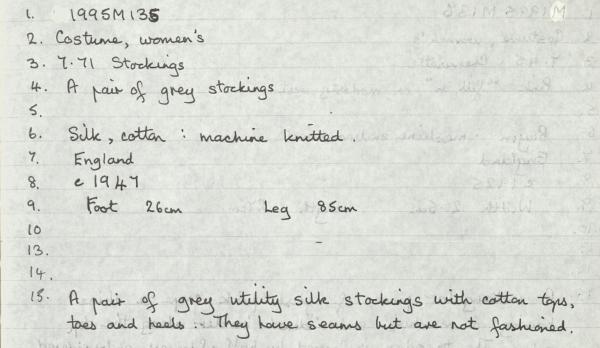 1. 1995M135
2. Costume, women's
3. 7.71 Stockings
4. A pair of grey stockings
5.
6. Silk, cotton : machine knitted.
7. England
8. c 1947
9. Foot 26cm Leg 85cm
10
13.
14.
15. A pair of grey utility silk stockings with cotton tops,
toes and heels. They have seams but are not fashioned.